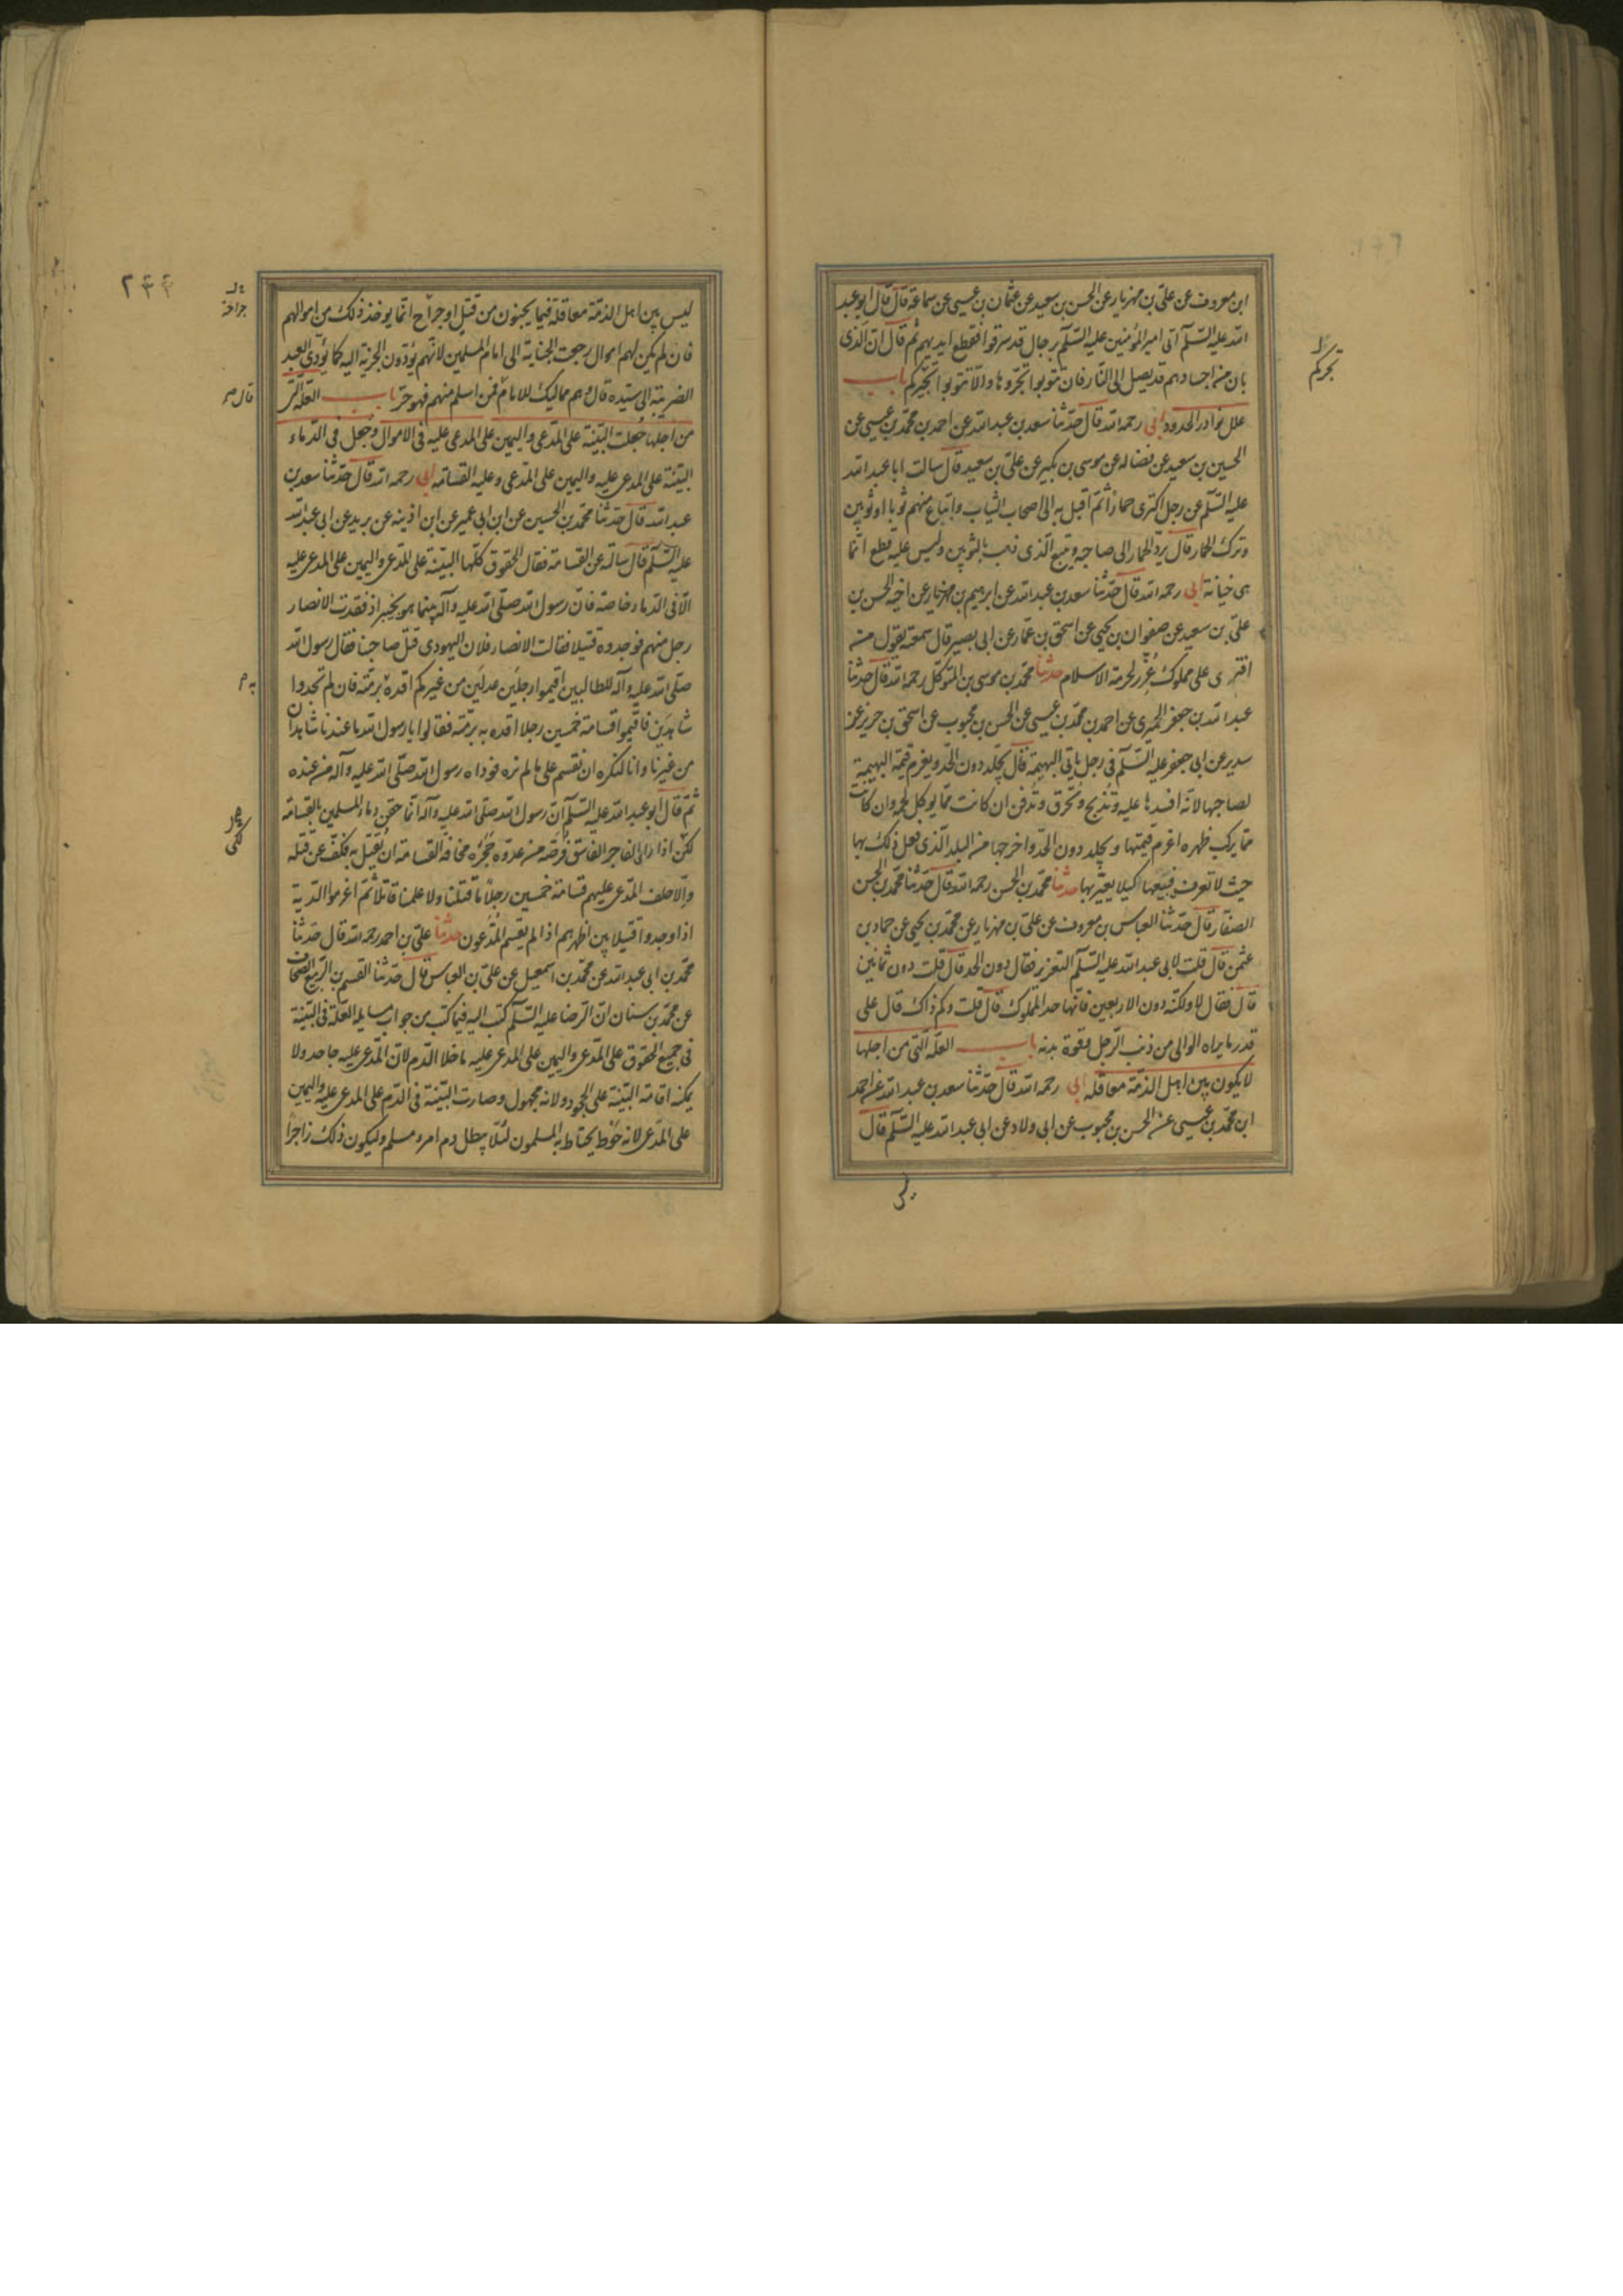 ابن معروف عن علی بن مهزیار عن الحسن بن سعید عن عثمان بن عیسی عن سماعة قال قال ابو عبد
الله علیه السلم اتی امیر المؤمنین علیه السلم برجال قد سرقوا فقطع ایدیهم ثم قال ان الذی
بان من اجسادهم قد یصل الی النار فان تتوبوا تجروها والا تتوبوا تجرکم باب
علل نوادر الحدود ابی رحمه الله قال حدثنا سعد بن عبد الله عن احمد بن محمد بن عیسی عن
الحسین بن سعید عن فضاله عن موسی بن بکیر عن علی بن سعید قال سالت ابا عبد الله
علیه السلم عن رجل اکتری حمارا ثم اقبل به الی اصحاب الثیاب وابتاع منهم ثوبا او ثوبین
وترک الحمار قال یرد الحمار الی صاحبه ویتبع الذی ذهب بالثوبین ولیس علیه قطع انما
هی خیانة ابی رحمه الله قال حدثنا سعد بن عبد الله عن ابرهیم بن مهزیار عن اخیه الحسن بن
علی بن سعید عن صفوان بن یحیی عن اسحق بن عمار عن ابی بصیر قال سمعته یقول من
افتری علی مملوک عزر لحرمة الاسلام حدثنا محمد بن موسی بن المتوکل رحمه الله قال حدثنا
عبد الله بن جعفر الحمیری عن احمد بن محمد بن عیسی عن الحسن بن محبوب عن اسحق بن حریز عن
سدیر عن ابی جعفر علیه السلم فی رجل یاتی البهیمة قال یجلد دون الحد ویغرم قیمة البهیمة
لصاحبها لانه افسدها علیه وتذبح وتحرق وتدفن ان کانت مما یوکل لحمه وان کانت
مما یرکب ظهره اغرم قیمتها ویجلد دون الحد واخرجها من البلد الذی فعل ذلک بها
حیث لا تعرف فیبیعها کیلا یعیر بها حدثنا محمد بن الحسن رحمه الله قال حدثنا محمد بن الحسن
الصفار قال حدثنا العباس بن معروف عن علی بن مهزیار عن محمد بن یحیی عن حماد بن
عثمن قال قلت لابی عبد الله علیه السلم التعزیر فقال دون الحد قال قلت دون ثمانین
قال فقال لا ولکنه دون الاربعین فانها حد المملوک قال قلت وکم ذاک قال علی
قدر ما یراه الوالی من ذنب الرجل وقوة بدنه باب العلة التی من اجلها
لا یکون بین اهل الذمة معاقله ابی رحمه الله قال حدثنا سعد بن عبد الله عن احمد
ابن محمد بن عیسی عن الحسن بن محبوب عن ابی ولاد عن ابی عبد الله علیه السلم قال
لیس
تجرکم
لیس بین اهل الذمة معاقلة فیما یجنون من قتل او جراح انما یوخذ ذلک من اموالهم
فان لم یکن لهم اموال رجعت الجنایة الی امام المسلمین لانهم یؤدون الجزیة الیه کما یؤدی العبد
الضریبة الی سیده قال وهم ممالیک للامام فمن اسلم منهم فهو حر باب العلة التی
من اجلها جعلت البینة علی المدعی والیمین علی المدعی علیه فی الاموال وجعل فی الدماء
البینة علی المدعی علیه والیمین علی المدعی وعلیه القسامه ابی رحمه الله قال حدثنا سعد بن
عبد الله قال حدثنا محمد بن الحسین عن ابن ابی عمیر عن ابن اذینه عن برید عن ابی عبد الله
علیه السلم قال سالته عن القسامة فقال الحقوق کلها البینة علی المدعی والیمین علی المدعی علیه
الا فی الدماء خاصة فان رسول الله صلی الله علیه وآله بینما هو بخیبر اذ فقدت الانصار
رجل منهم فوجدوه قتیلا فقالت الانصار فلان الیهودی قتل صاحبنا فقال رسول الله
صلی الله علیه وآله للطالبین اقیموا رجلین عدلین من غیرکم اقده برمته فان لم تجدوا
شاهدین فاقیموا قسامة خمسین رجلا اقده به برمته فقالوا یا رسول الله ما عندنا شاهدان
من غیرنا وانا لنکره ان نقسم علی ما لم نره فوداه رسول الله صلی الله علیه وآله من عنده
ثم قال ابو عبد الله علیه السلم ان رسول الله صلی الله علیه وآله انما حقن دماء المسلمین بالقسامة
لکن اذا رای الفاجر الفاسق فرصة من عدوه حجزه مخافة القسامة ان یقتل به فکف عن قتله
والا حلف المدعی علیهم قسامة خمسین رجلا ما قتلنا ولا علمنا قاتلا ثم اغرموا الدیة
اذا وجدوا قتیلا بین اظهرهم اذا لم یقسم المدعون حدثنا علی بن احمد رحمه الله قال حدثنا
محمد بن ابی عبد الله عن محمد بن اسمعیل عن علی بن العباس قال حدثنا القسم بن الربیع الصحاف
عن محمد بن سنان ان الرضا علیه السلم کتب الیه فیما کتب من جواب مسایله العلة فی البینة
فی جمیع الحقوق علی المدعی والیمین علی المدعی علیه ما خلا الدم لان المدعی علیه جاحد ولا
یمکنه اقامة البینة علی الجحود ولانه مجهول وصارت البینة فی الدم علی المدعی علیه والیمین
علی المدعی لانه حوط یحتاط به المسلمون لئلا یبطل دم امرء مسلم ولیکون ذلک زاجرا
جراحة
قال